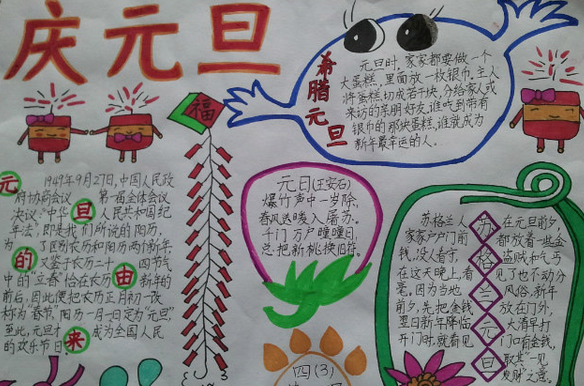 庆元旦
福
元旦的由来
1949年9月27日,中国人民政
府协商会议 第一届全体会议
决议:"中华 人民共和国纪
年法",即是我们所说的阳历,
为 了区别农历和阳历两个新年
又鉴于农历二十 四节气
中的"立春"恰在农历 新年的
前后,因此便把农历正月初一改
称为"春节,阳历一月一日定为"元旦"
至此,元旦才 成为全国人民
的欢乐节日。
希腊元旦
元旦时,家家都要做一个
大蛋糕,里面放一枚银币,主人
将蛋糕切成若干块,分给家人或
来访的亲朋好友,谁吃到带有
银币的那块蛋糕,谁就成为
新年最幸运的人。
元日(王安石)
爆竹声中一岁除,
春风送暖入屠苏。
千门万户曈曈日,
总把新桃换旧符。
四(3)
苏格兰元旦
苏格兰人
家家户户门前
没人看守,
在这天晚上,看
毫。因为当地
前夕,先把金钱
翌日新年降临
开门时,就看见
在元旦前夕,
都放着一些金
盗贼和乞丐
见了也不动分
风俗,新年
放在门外,
大清早打
门口有金钱,
取其"一见
发财"之意。